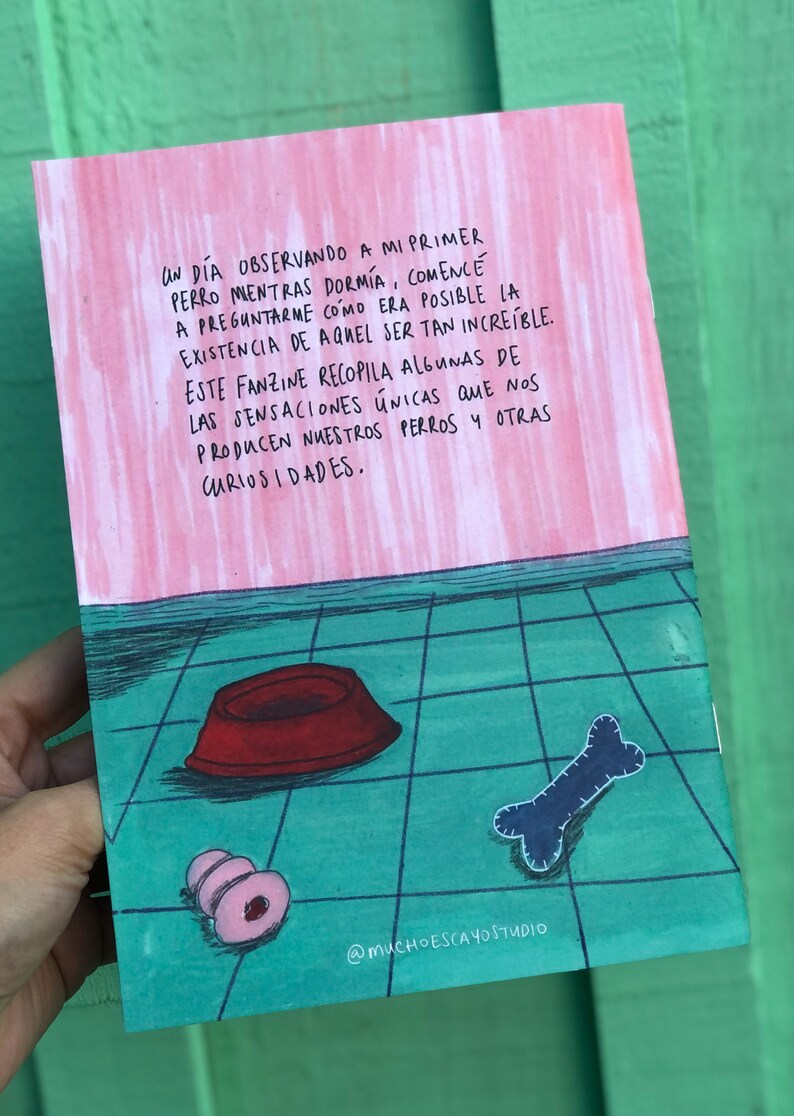 UN DÍA OBSERVANDO A MI PRIMER
PERRO MIENTRAS DORMÍA, COMENCÉ
A PREGUNTARME CÓMO ERA POSIBLE LA
EXISTENCIA DE AQUEL SER TAN INCREÍBLE.
ESTE FANZINE RECOPILA ALGUNAS DE
LAS SENSACIONES ÚNICAS QUE NOS
PRODUCEN NUESTROS PERROS Y OTRAS
CURIOSIDADES.
@MUCHOESCAYOSTUDIO